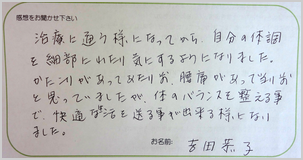 感想をお聞かせ下さい
治療に通う様になってから、自分の体調
を細部にわたり気にするようになりました。
かたこりがあってあたりまえ、腰痛があって当りまえ
と思っていましたが、体のバランスを整える事
で、快適な生活を送る事が出来る様になり
ました。
お名前: 吉田 恭子